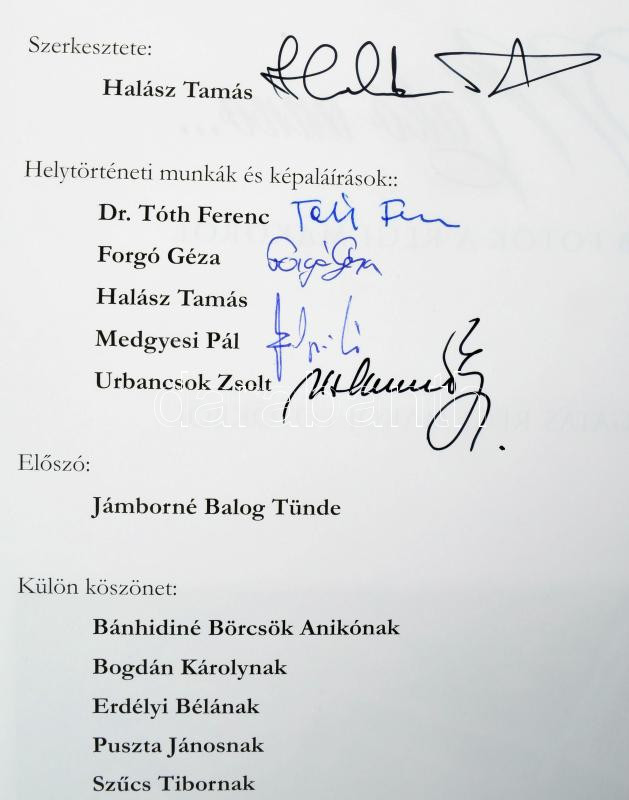 Szerkesztete:
Halász Tamás
Helytörténeti munkák és képaláírások::
Dr. Tóth Ferenc
Forgó Géza
Forgó Géza
Halász Tamás
Medgyesi Pál
Urbancsok Zsolt
darabanth
Előszó:
Jámborné Balog Tünde
Külön köszönet:
Bánhidiné Börcsök Anikónak
Bogdán Károlynak
Erdélyi Bélának
Puszta Jánosnak
Szűcs Tibornak